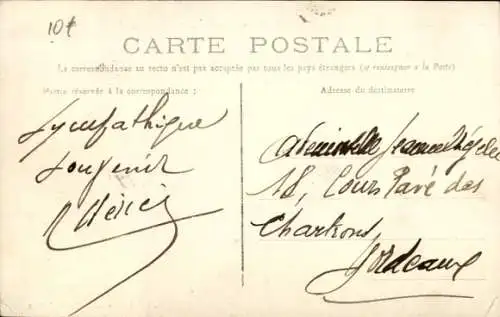 10€
CARTE POSTALE
La correspondance au recto n'est pas acceptée par tous les pays étrangers (se renseigner à la Poste)
Partie réservée à la correspondance :
Adresse du destinataire
Sympathique
Souvenir
Mademoiselle Jeanne
18, Cours Pavé des
Chartrons
Bordeaux